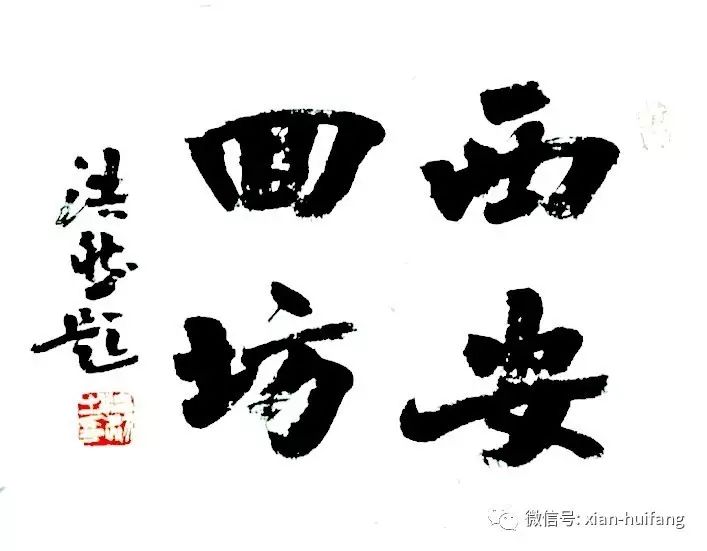 西安
回坊
题
微信号: xian-huifang